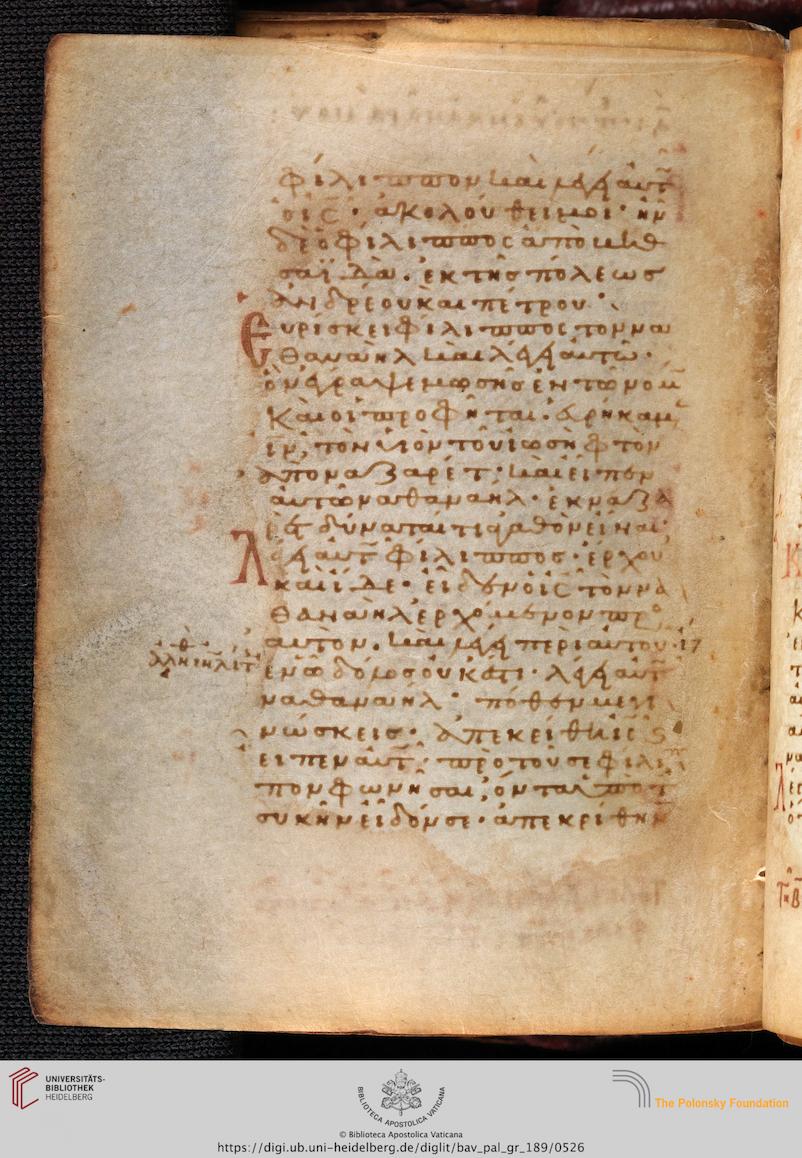 φίλιππον καὶ λέγει αὐτ
ὁ ις· ἀκολούθει μοι· ἦν
δὲ ὁ φίλιππος ἀπὸ βηθ
σαϊδά. ἐκ τῆς πόλεως
ἀνδρέου καὶ πέτρου·
Εὑρίσκει φίλιππος τὸν να
θαναὴλ καὶ λέγει αὐτῶ·
ὃν ἔγραψε μωσῆς ἐν τῶ νόμ
καὶ οἱ προφῆται. εὑρήκαμ
ιν, τὸν υἱὸν τοῦ ἰωσὴφ τὸν
ἀπὸ ναζαρέτ· καὶ εἶπεν
αὐτῶ ναθαναήλ· ἐκ ναζα
ρὲτ δύναταί τι ἀγαθὸν εἶναι·
Λέγει αὐτ φίλιππος· ἔρχου
καὶ ἴδε· εἶδεν ὁ ις τὸν να
θαναὴλ ἐρχόμενον πρὸ
αὐτὸν. καὶ λέγει περὶ αὐτοῦ
ἐν ῶ δόλος οὐκ ἔστι· λέγει αὐτ
ναθαναήλ· πόθεν με γι
νώσκεις· ἀπεκρίθη ις
εἶπεν αὐτ· πρὸ τοῦ σε φίλι
πον φωνῆσαι, ὄντα ὑπὸ τ
συκῆν εἶδόν σε· ἀπεκρίθη ν
UNIVERSITÄTS-
BIBLIOTHEK
HEIDELBERG
BIBLIOTECA APOSTOLICA VATICANA
The Polonsky Foundation
© Biblioteca Apostolica Vaticana
https://digi.ub.uni-heidelberg.de/diglit/bav_pal_gr_189/0526